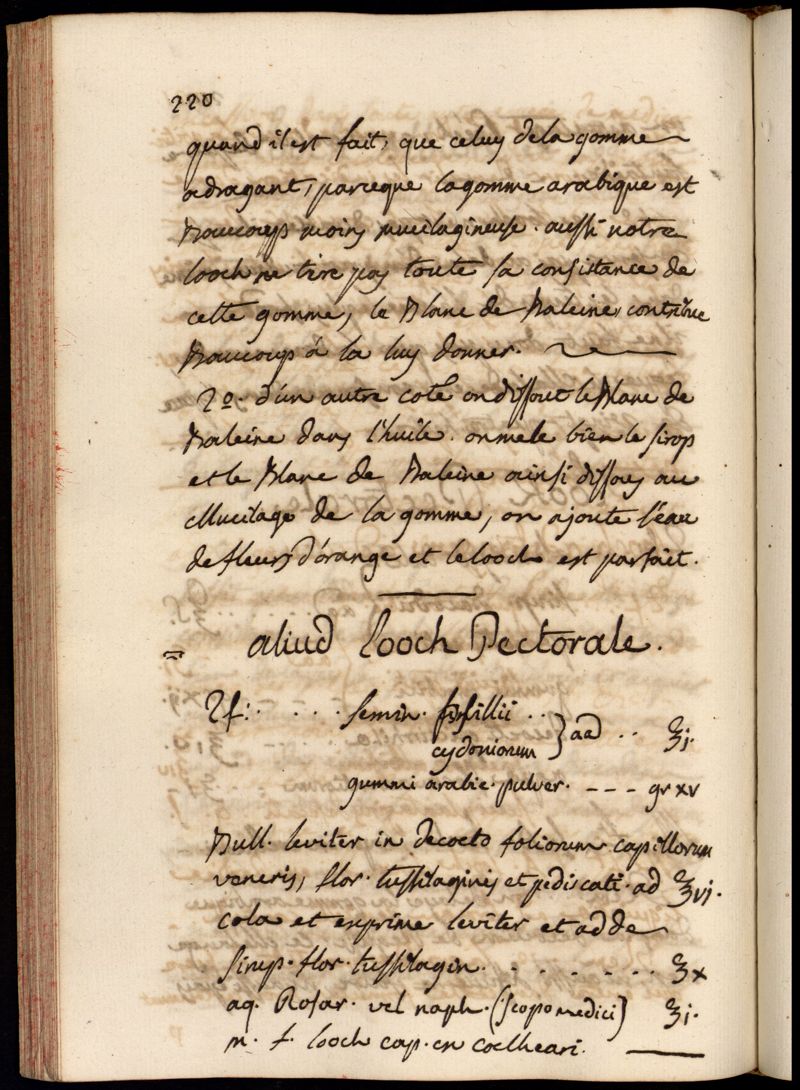 220
quand il est fait, que celuy de la gomme
adragant, parceque la gomme arabique est
Beaucoups moins mucilagineuse. aussi notre
looch ne tire pas toute sa consistance de
cette gomme, le Blanc de Baleine contribue
Beaucoups à la luy donner.
2º. d'un autre coté on dissout le Blanc de
Baleine dans l'huile. on mele bien le sirop
et le Blanc de Baleine ainsi dissous au
Mucilage de la gomme, on ajoute l'eau
de fleurs d'orange et le looch est parfait.
= aliud Looch Pectorale.
♃: . . . Semin. psillii . .
cydoniorum } aa . . ʒj.
gummi arabic. pulver. - - - gr xv
Bull. leviter in decocto foliorum capillorum
veneris, flor. tussilaginis et pedis cati. ad ℥vj.
cola et exprime leviter et adde
Sirup. flor. tussilagin. . . . . . . ʒx
aq. Rosar. vel naph. (scopo medici) ʒj.
m. f. looch cap. en coclheari.